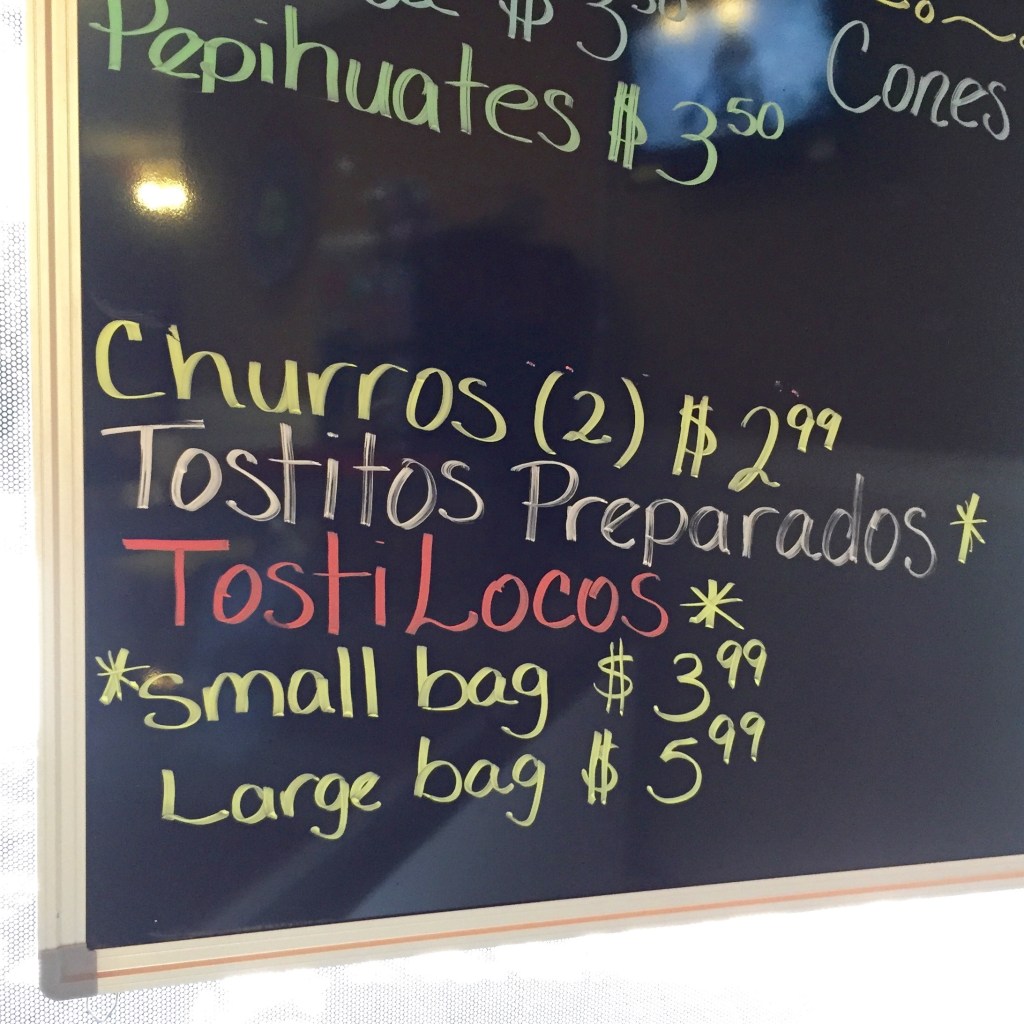 $ 3 50
Pepihuates $ 3 50
Cones
Churros (2) $ 2 99
Tostitos Preparados *
TostiLocos *
*small bag $ 3 99
Large bag $ 5 99